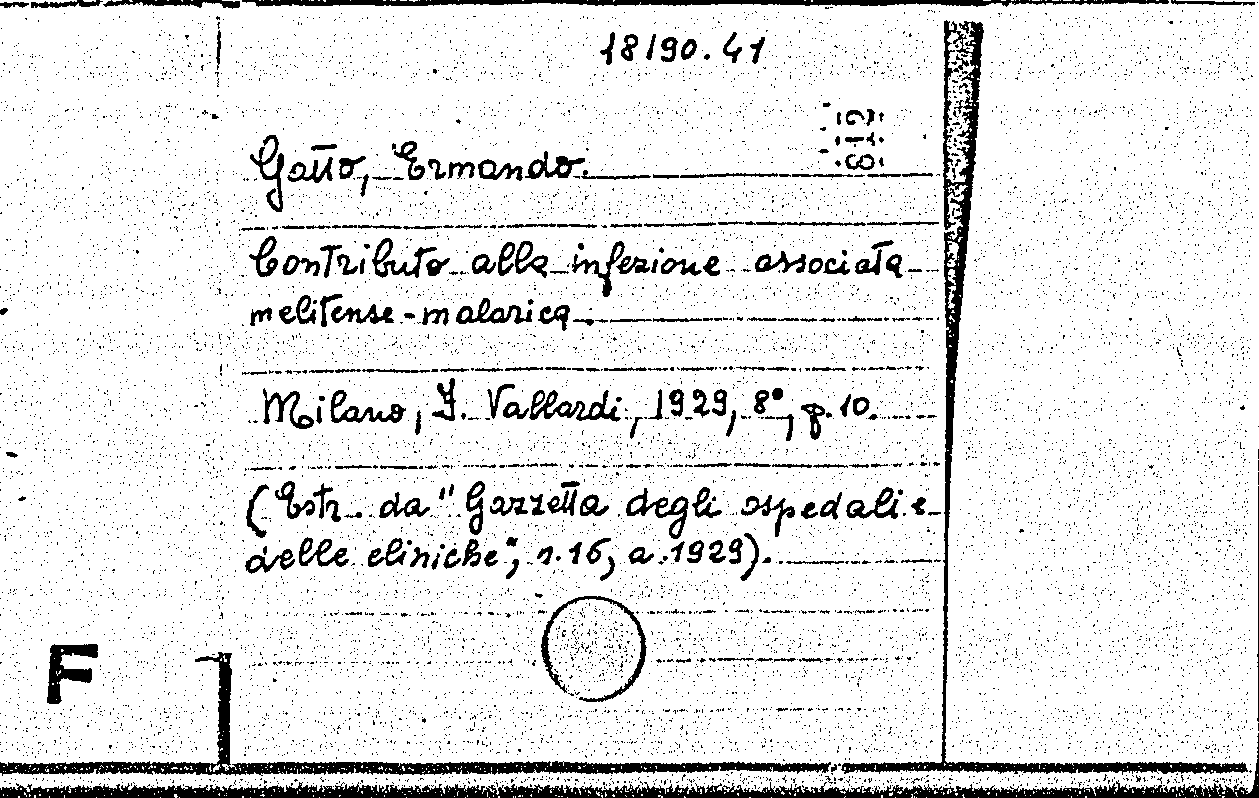 18190.41
Gatto, Ermando.
Contributo alla infezione associata
melitense-malarica.
Milano, F. Vallardi, 1929, 8°, p. 10.
(Estr. da "Gazzetta degli ospedali e
delle cliniche", n. 16, a. 1929).
F